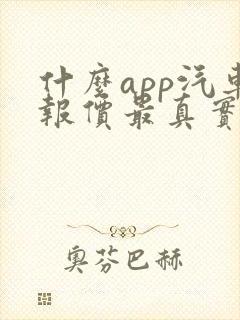 什麼app汽車
報價最真實
奧芬巴赫